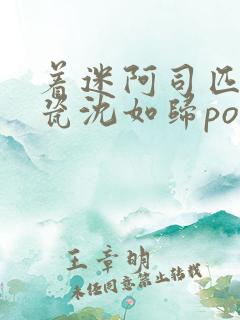 着迷阿司匹
瓷沈如归po
王章明
未经同意禁止转载